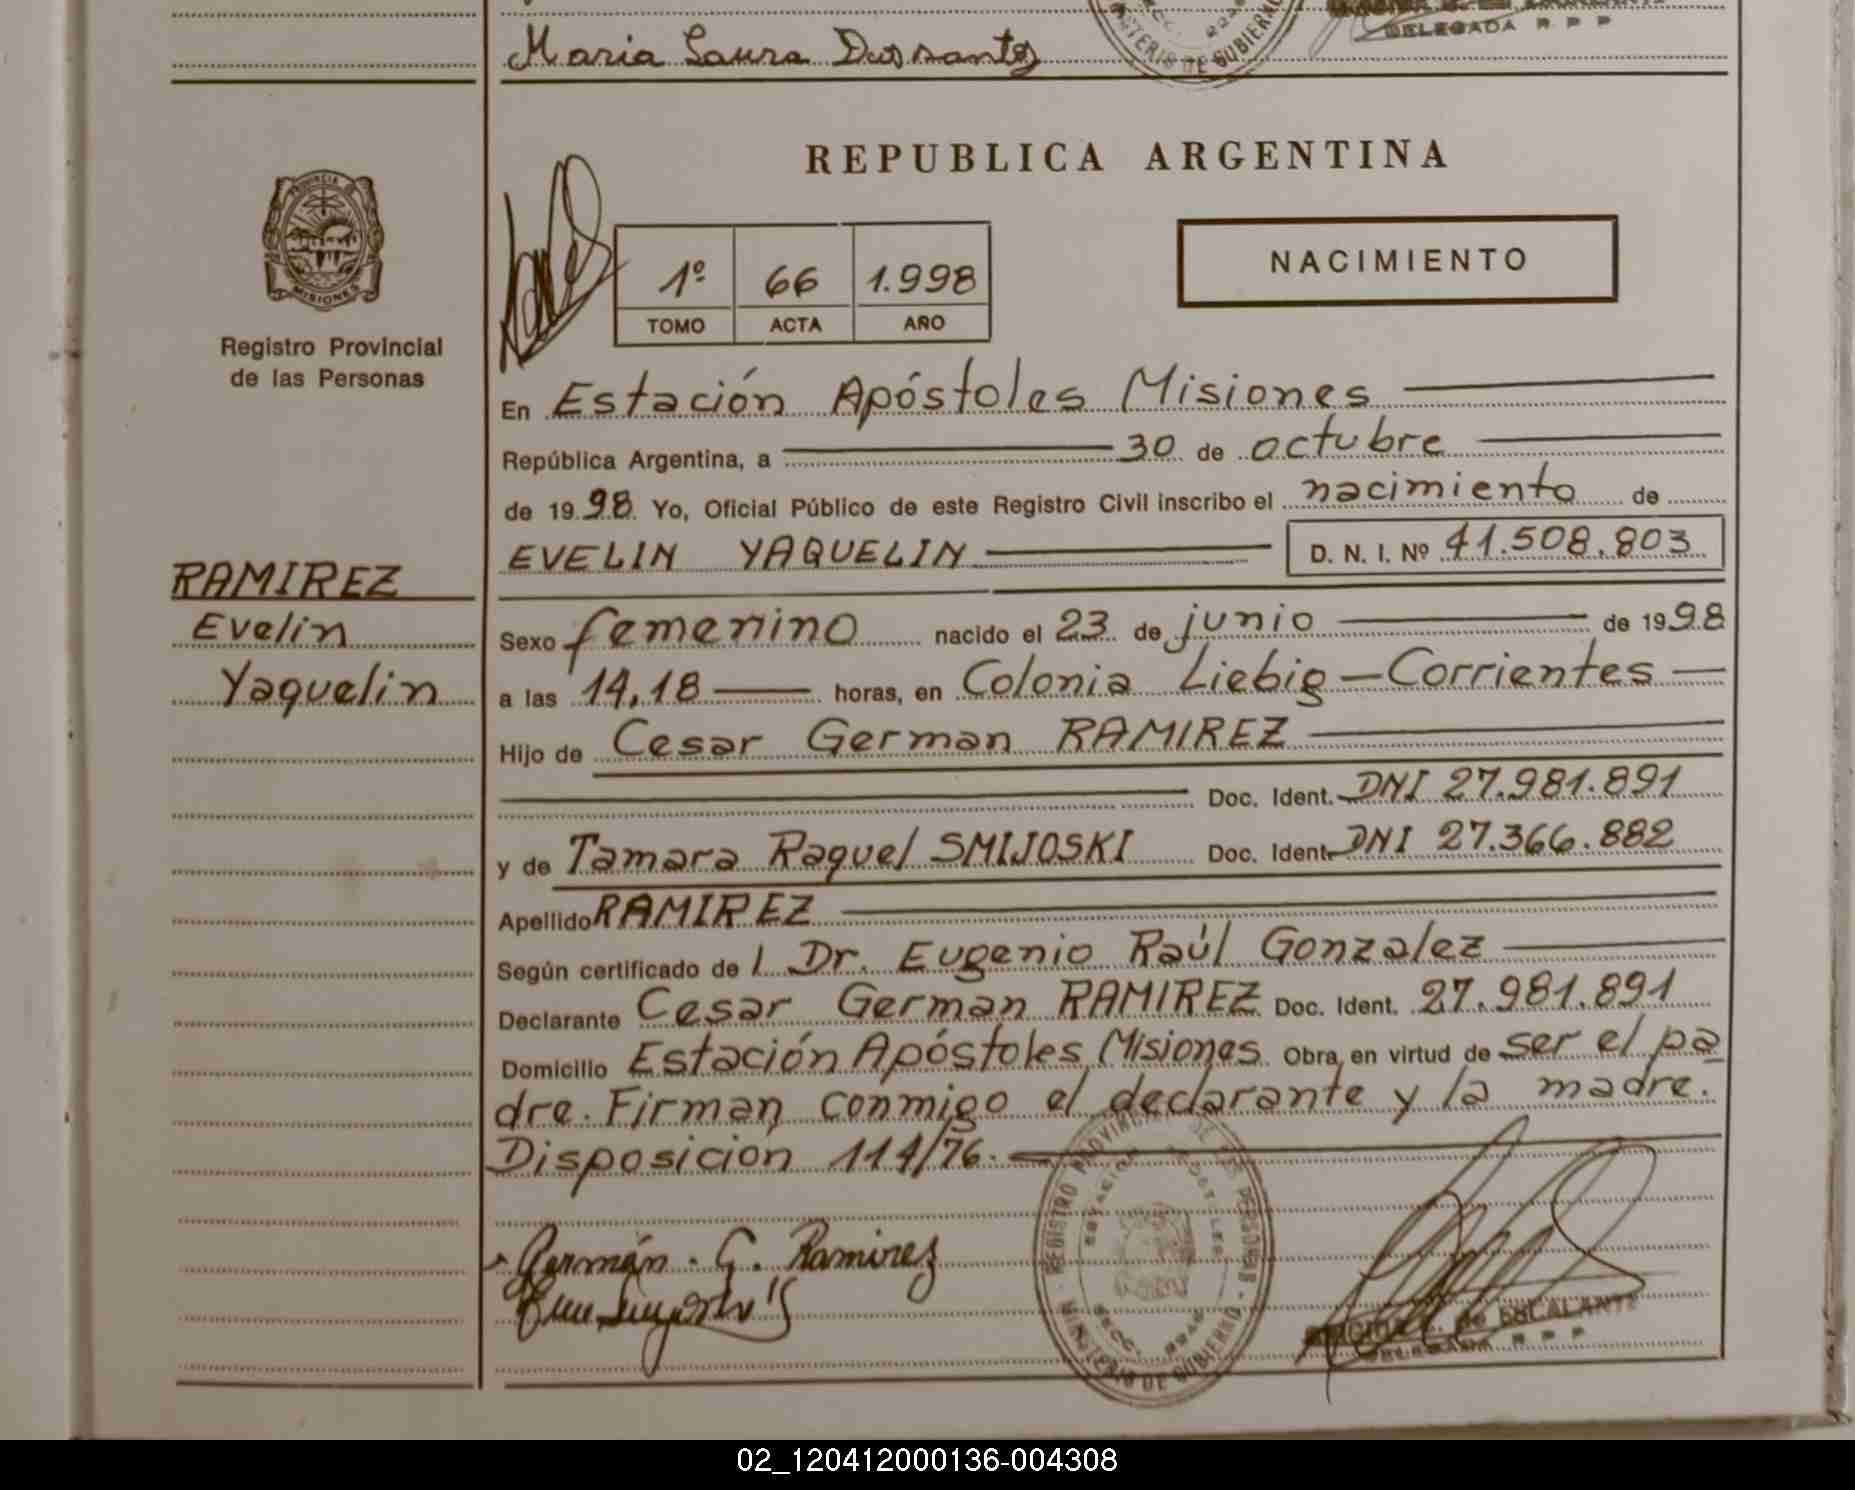 Maria Laura Dossantos
MINISTERIO DE GOBIERNO
DELEGADA R P P
REPUBLICA ARGENTINA
PROVINCIA DE
MISIONES
Registro Provincial
de las Personas
1º 66 1.998
TOMO ACTA AÑO
NACIMIENTO
En Estación Apóstoles Misiones
República Argentina, a 30 de octubre
de 1998 Yo, Oficial Público de este Registro Civil inscribo el nacimiento de
EVELIN YAQUELIN D. N. I. Nº 41.508.803
RAMIREZ
Evelin
Yaquelin
Sexo femenino nacido el 23 de junio de 1998
a las 14,18 horas, en Colonia Liebig - Corrientes
Hijo de Cesar German RAMIREZ
Doc. Ident. DNI 27.981.891
y de Tamara Raquel SMIJOSKI Doc. Ident. DNI 27.366.882
Apellido RAMIREZ
Según certificado de l Dr. Eugenio Raúl Gonzalez
Declarante Cesar German RAMIREZ Doc. Ident. 27.981.891
Domicilio Estación Apóstoles Misiones Obra en virtud de ser el pa
dre. Firman conmigo el declarante y la madre.
Disposición 114/76.
Germán . C. Ramirez
REGISTRO PROVINCIAL DE LAS PERSONAS
ESTACION APOSTOLES
MINISTERIO DE GOBIERNO
de ESCALANTE
DELEGADA R P P
02_120412000136-004308